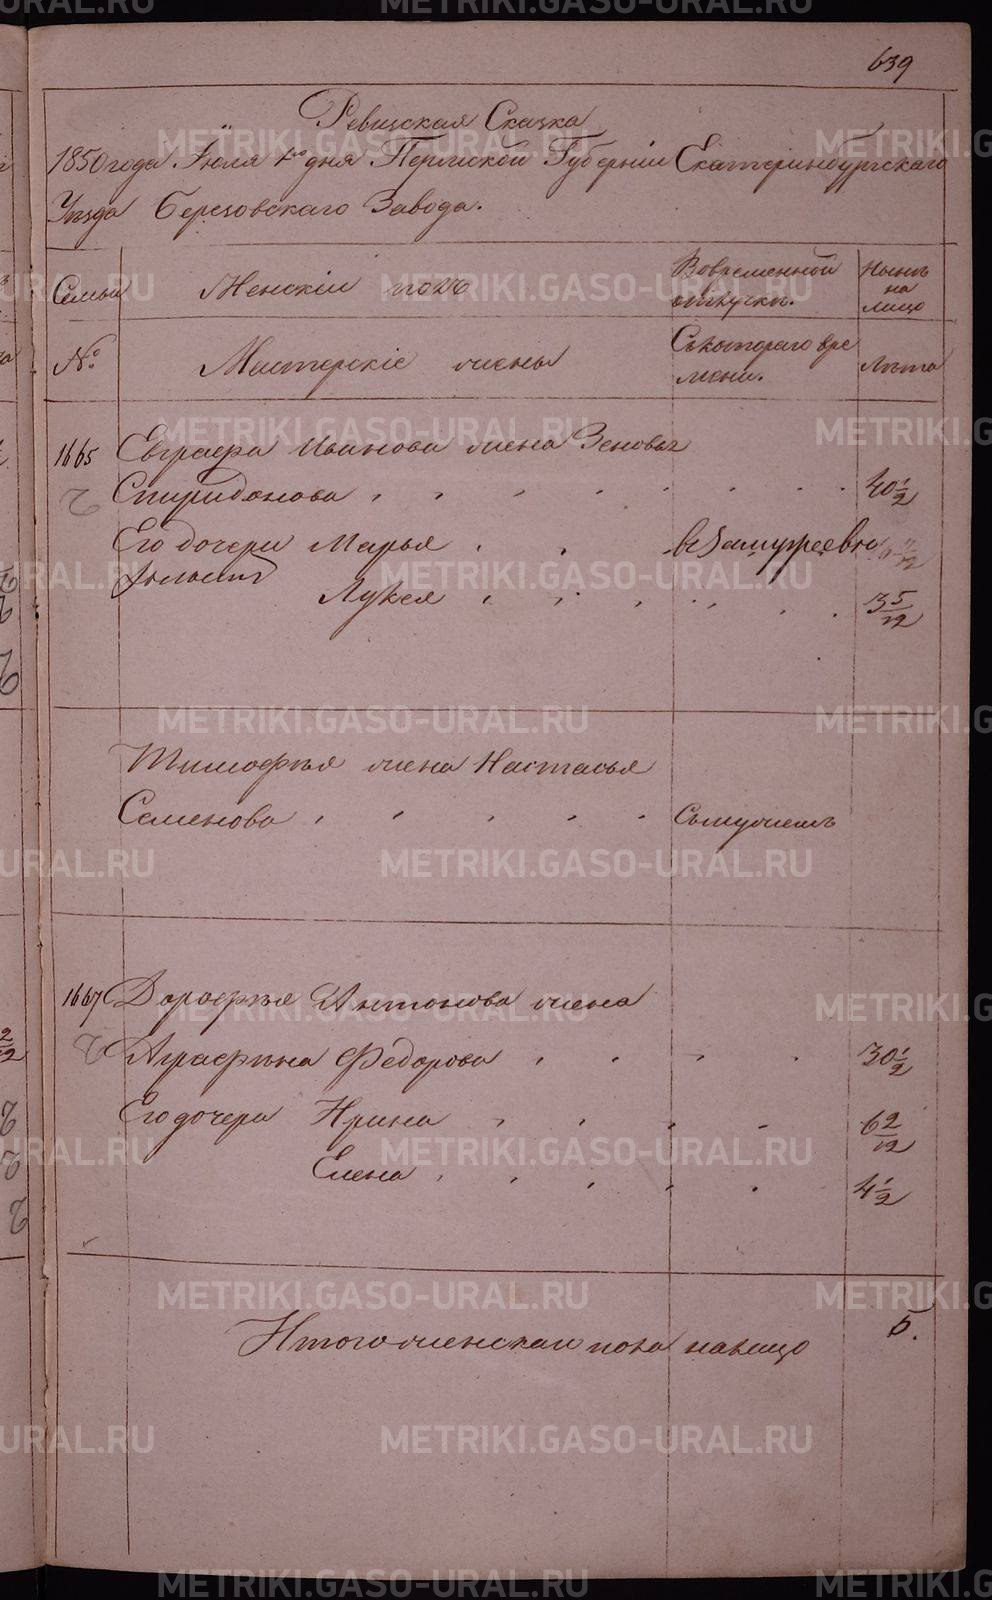 639
Ревизская Сказка
1850 года Іюля 1го дня Пермской Губерніи Екатеринбургскаго
Уѣзда Березовскаго Завода.
Семьи
Женскій полъ
Вовременной
отлучкѣ.
Нынѣ
на
лицо
№
Мастерскіе жены
Съкотораго вре
мени.
Лѣта
1665 Евграфа Иванова жена Зеновья
Спиридонова 40 1/2
Его дочери Марья в Замужеѣство
Лукея 3 5/12
Тимофѣя жена Настасья
Семенова Съмужемъ
1667 Дорофѣя Антонова жена
Аграфѣна Федорова 30 1/2
Его дочери Ирина 6 2/12
Елена 4 1/2
Итого женскаго пола налицо 5.
METRIKI.GASO-URAL.RU